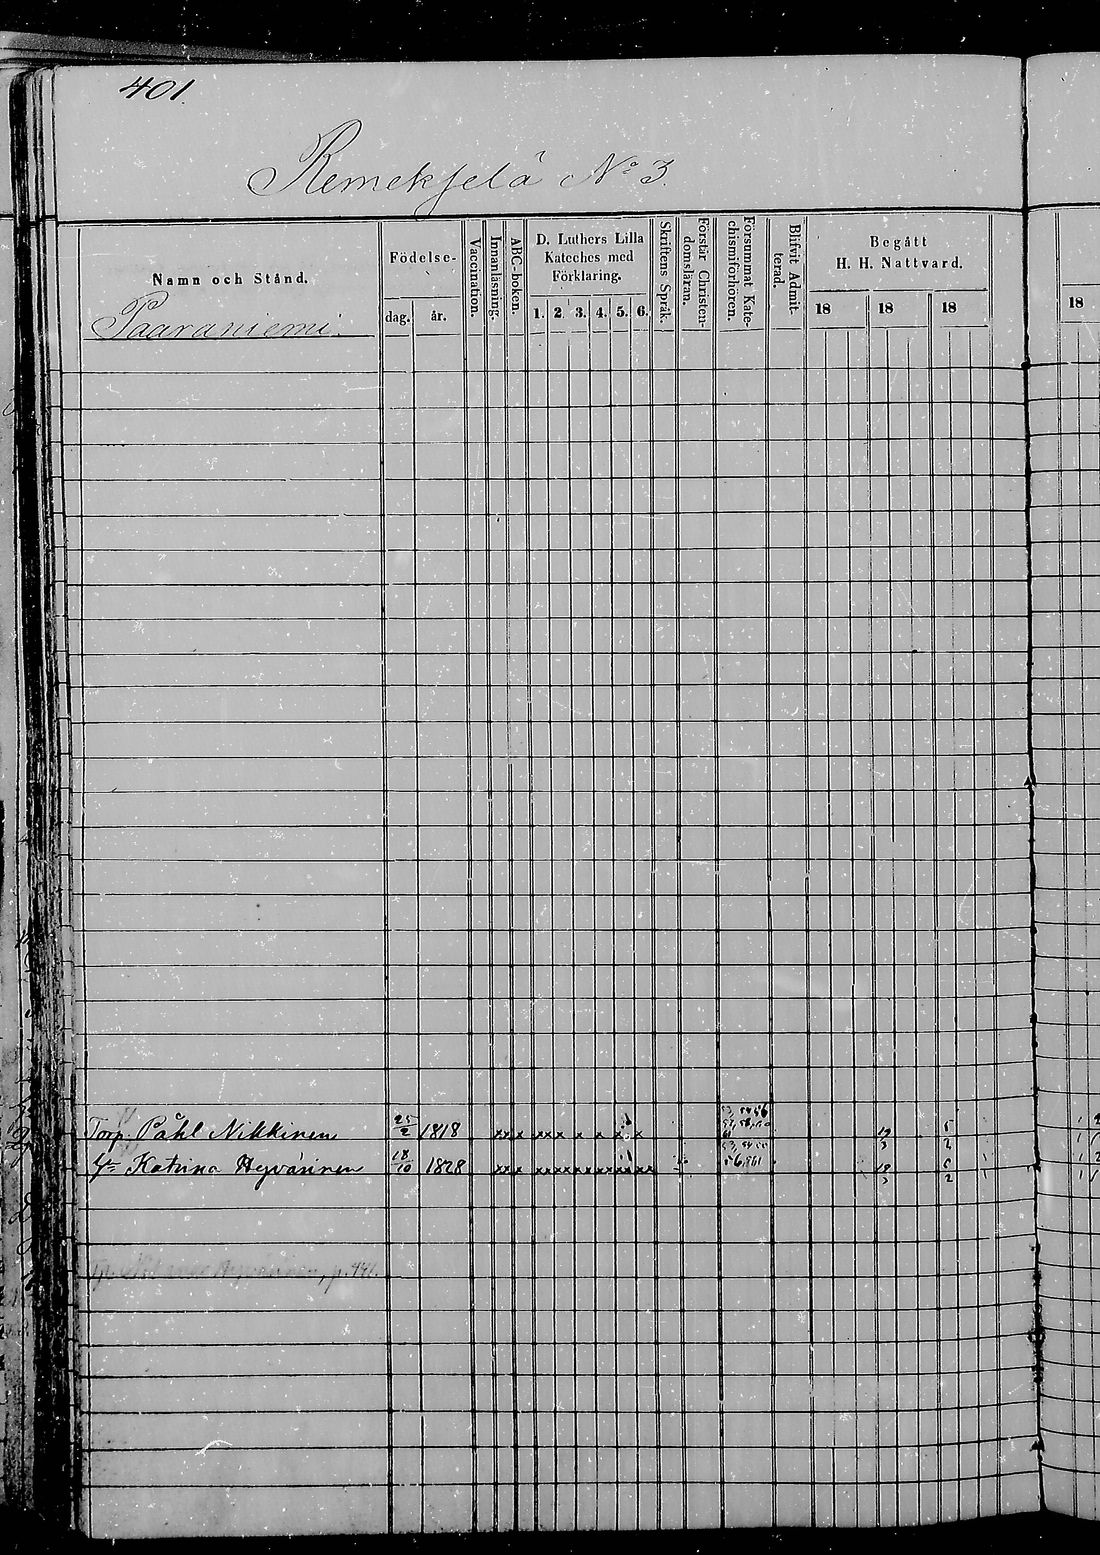 401.
Remekselä No 3.
Namn och Stånd.
Födelse-
dag. år.
Vaccination.
Innanläsning.
ABC-boken.
D. Luthers Lilla
Kateches med
Förklaring.
1. 2. 3. 4. 5. 6.
Skriftens Språk.
Förstår Christen-
domsläran.
Försummat Kate-
chismiförhören.
Blifvit Admit-
terad.
Begått
H. H. Nattvard.
18 18 18
18
Paaraniemi.
Torp. Påhl Nikkinen 25/2 1818 xx x xxx x x x x
Katrina Hyvärinen 18/10 1828 xx x xxxxxxxxxxxx
p. 441.